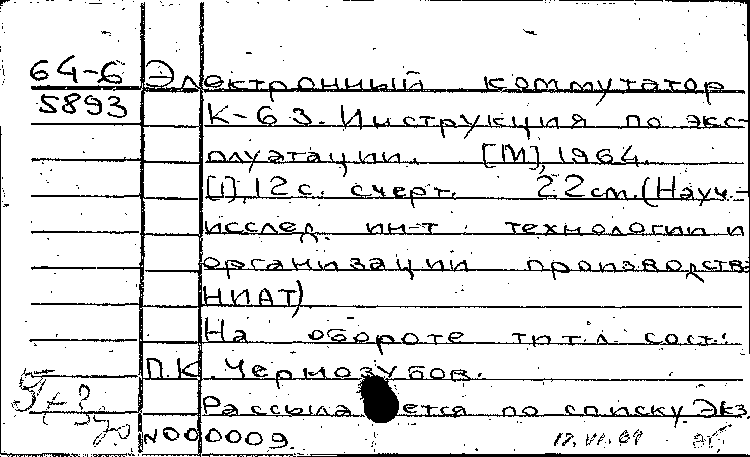 64-6 Электронный коммутатор
5893 К-63. Инструкция по экс-
плуатации. [М], 1964.
[1], 12 с. с черт. 22 см. (Науч.-
исслед. ин-т технологии и
организации производств
НИАТ)
На обороте тит. л. сост.:
П.К. Чернозубов.
Рассылается по списку. Экз.
№000009.
17.VI.64